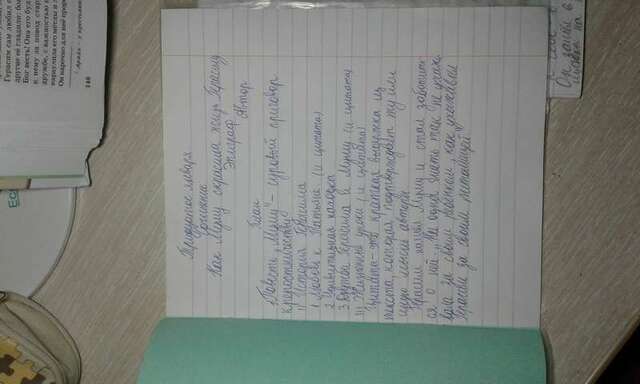 Eco
Герасим сам любил е
другие её гладили: бо
Бог весть! Она его бу
к нему за повод стар
дружбе, с важностью
караулила его мётлы и л
Он нарочно для неё прор
¹ Армяк – у крестьян
146
Тридцатое января
Сочинение
Как Муму скрасила жизнь Герасиму
Эпиграф
Автор
План
I Повесть „Муму" – суровый приговор
крепостничеству
II История Герасима
1 Любовь к Татьяне (и цитата)
2 Удивительная находка
3 Дружба Герасима и Муму (и цитата)
III Жизненные уроки (и цитата)
Цитата – это краткая выдержка из
текста, которая подтверждает ту или
иную мысль автора.
Герасим назвал Муму и стал заботить
ся о ней. „Ни одна мать так не ухажи
вала за своим ребёнком, как ухаживал
Герасим за своим питомицей"
Он
на